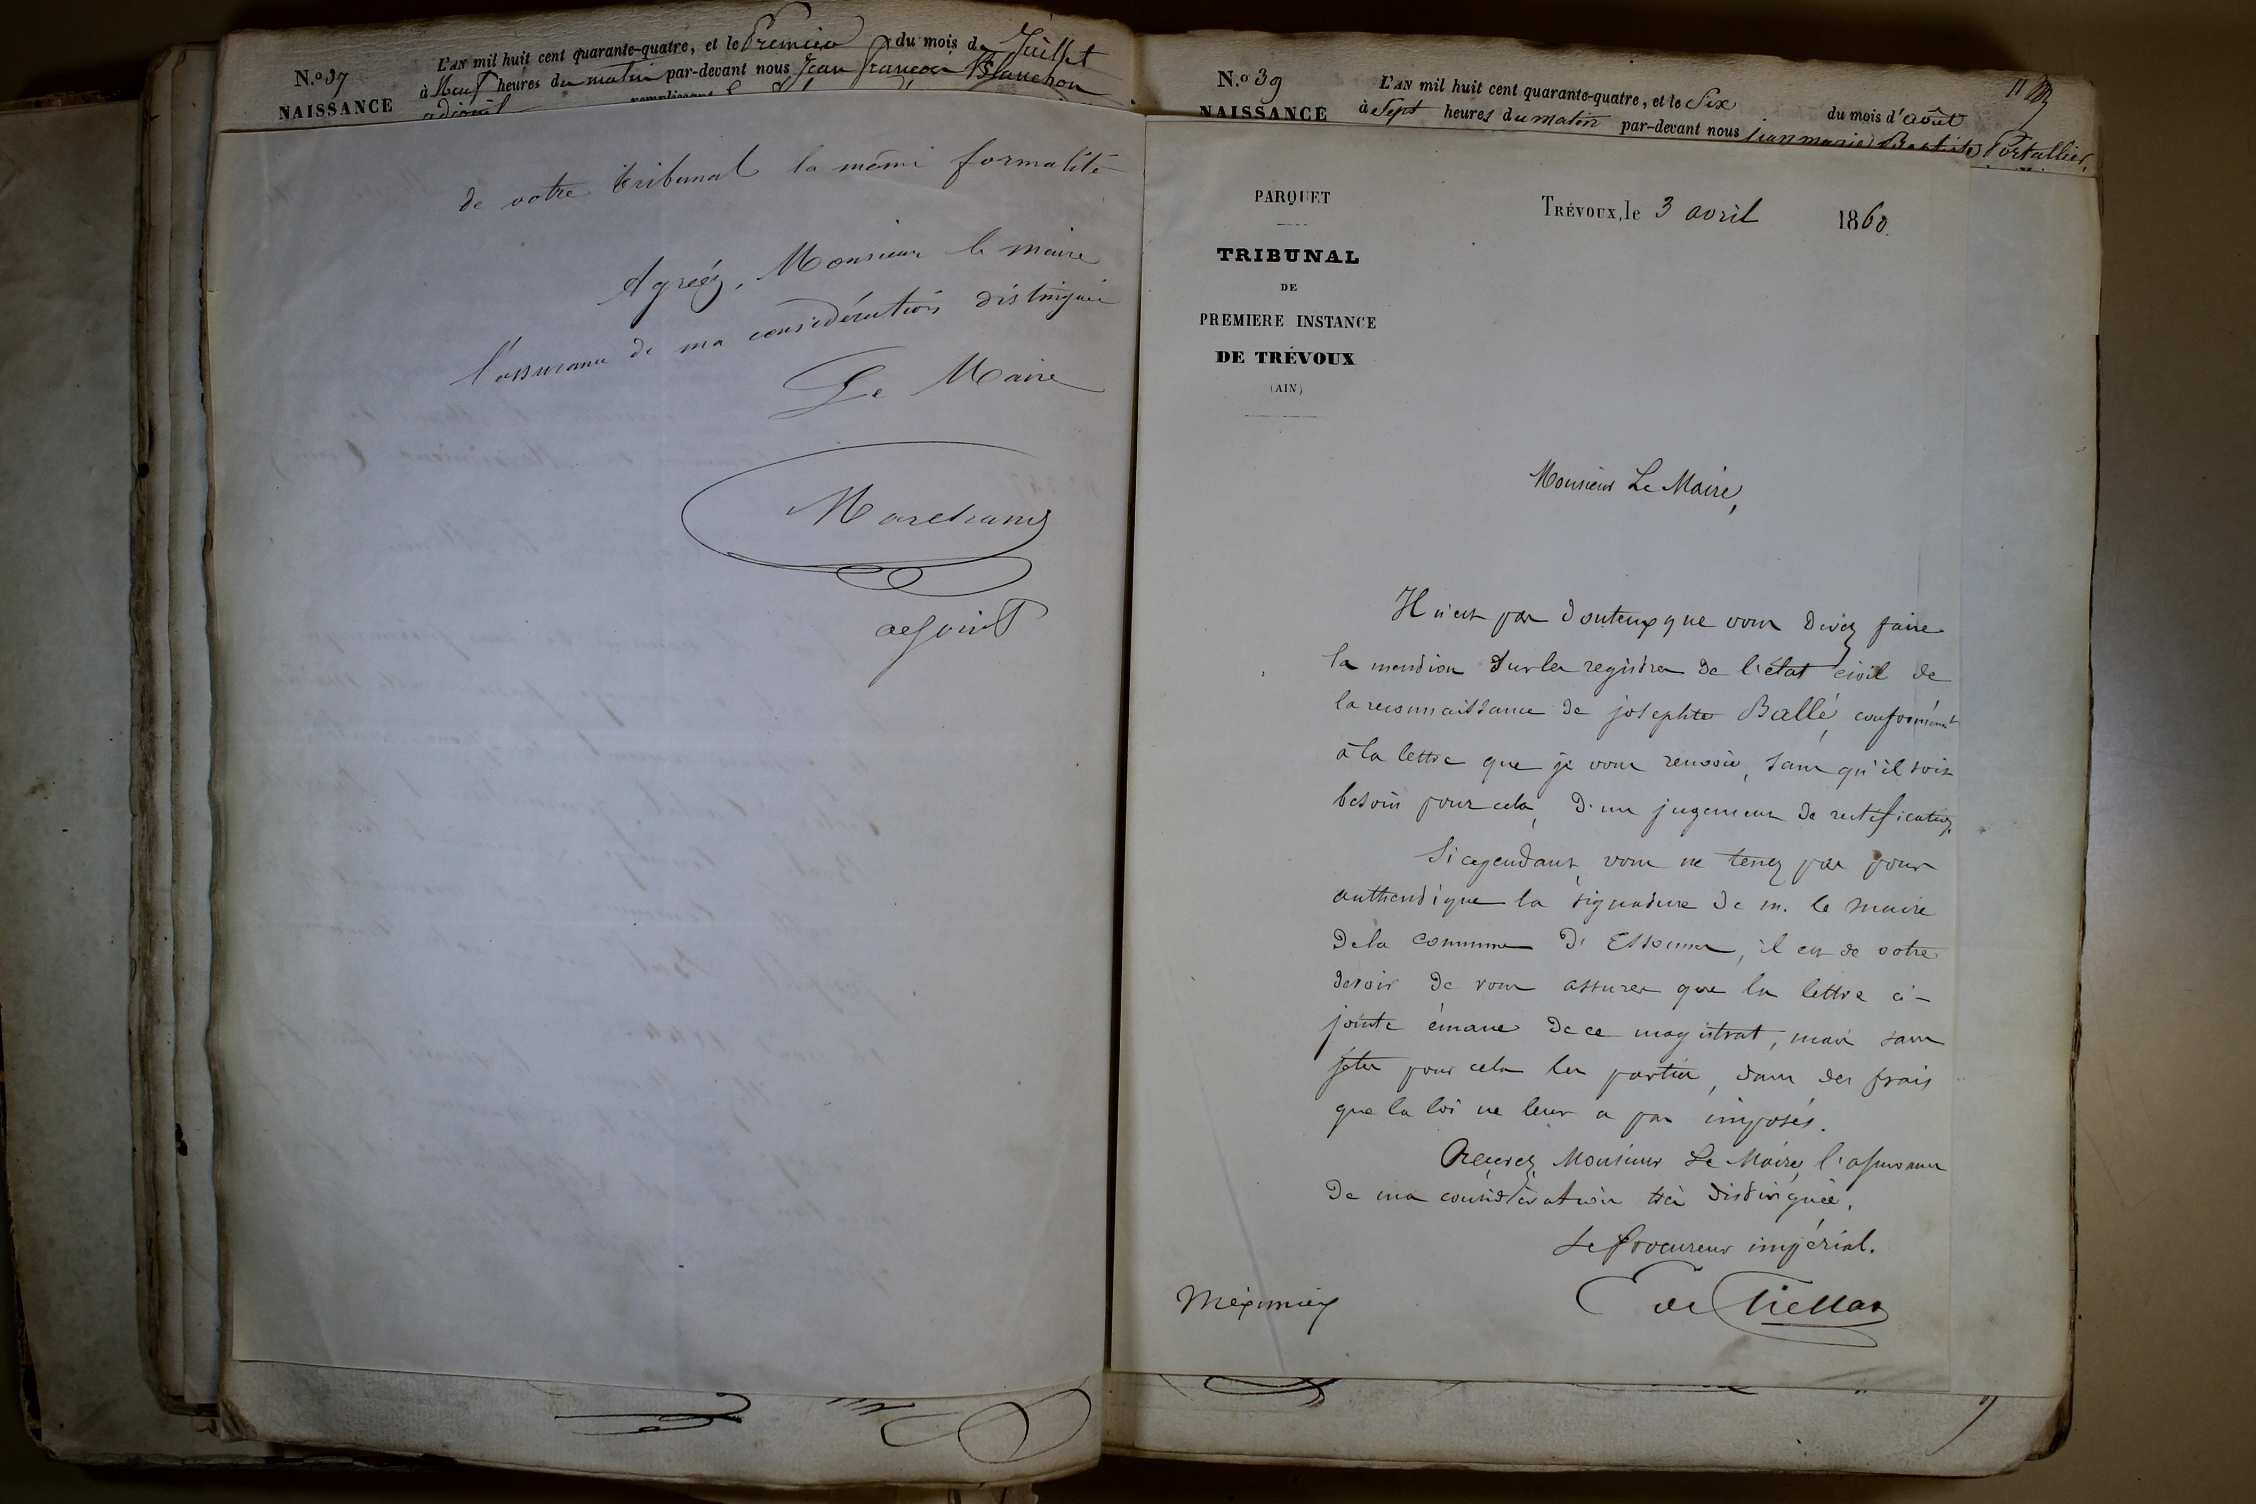 N.º 37
NAISSANCE
L'AN mil huit cent quarante-quatre, et le Premier du mois de Juillet
à Neuf heures du matin par-devant nous Jean François Blanchon
adjoint
de votre tribunal la même formalité
Agréez, Monsieur le maire
l'assurance de ma considération distinguée
Le Maire
Marchand
adjoint
N.º 39
NAISSANCE
L'AN mil huit cent quarante-quatre, et le Six du mois d'août
à Sept heures du matin par-devant nous jean marie Baptiste Portallier
PARQUET
TRIBUNAL
DE
PREMIERE INSTANCE
DE TRÉVOUX
(AIN)
TRÉVOUX, le 3 avril 1860.
Monsieur Le Maire,
Il n'est pas douteux que vous devez faire
la mention sur les registres de l'état civil de
la reconnaissance de josephte Ballé, conformément
à la lettre que je vous renvoie, sans qu'il soit
besoin pour cela, d'un jugement de rectification.
Si cependant, vous ne tenez pas pour
authentique la signature de m. le maire
de la commune d'Essonnes, il est de votre
devoir de vous assurer que la lettre ci-
jointe émane de ce magistrat, mais sans
jeter pour cela les parties, dans des frais
que la loi ne leur a pas imposés.
Recevez, Monsieur Le Maire, l'assurance
de ma considération très distinguée.
Le procureur impérial.
Meximieux